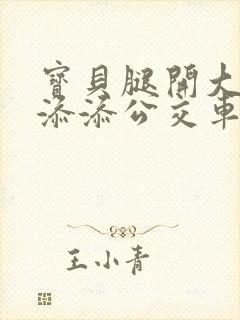 寶貝腿開大
添添公交車
王小青